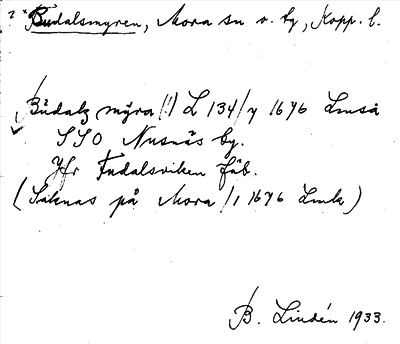 ? *Budalsmyren, Mora sn o. by, Kopp. l.
Budalz myra (!) L 134/7 1676 Lmså
SSO Nusnäs by.
Jfr Fudalsviken fäb.
(Saknas på Mora /1 1676 Lmk)
B. Lindén 1933.